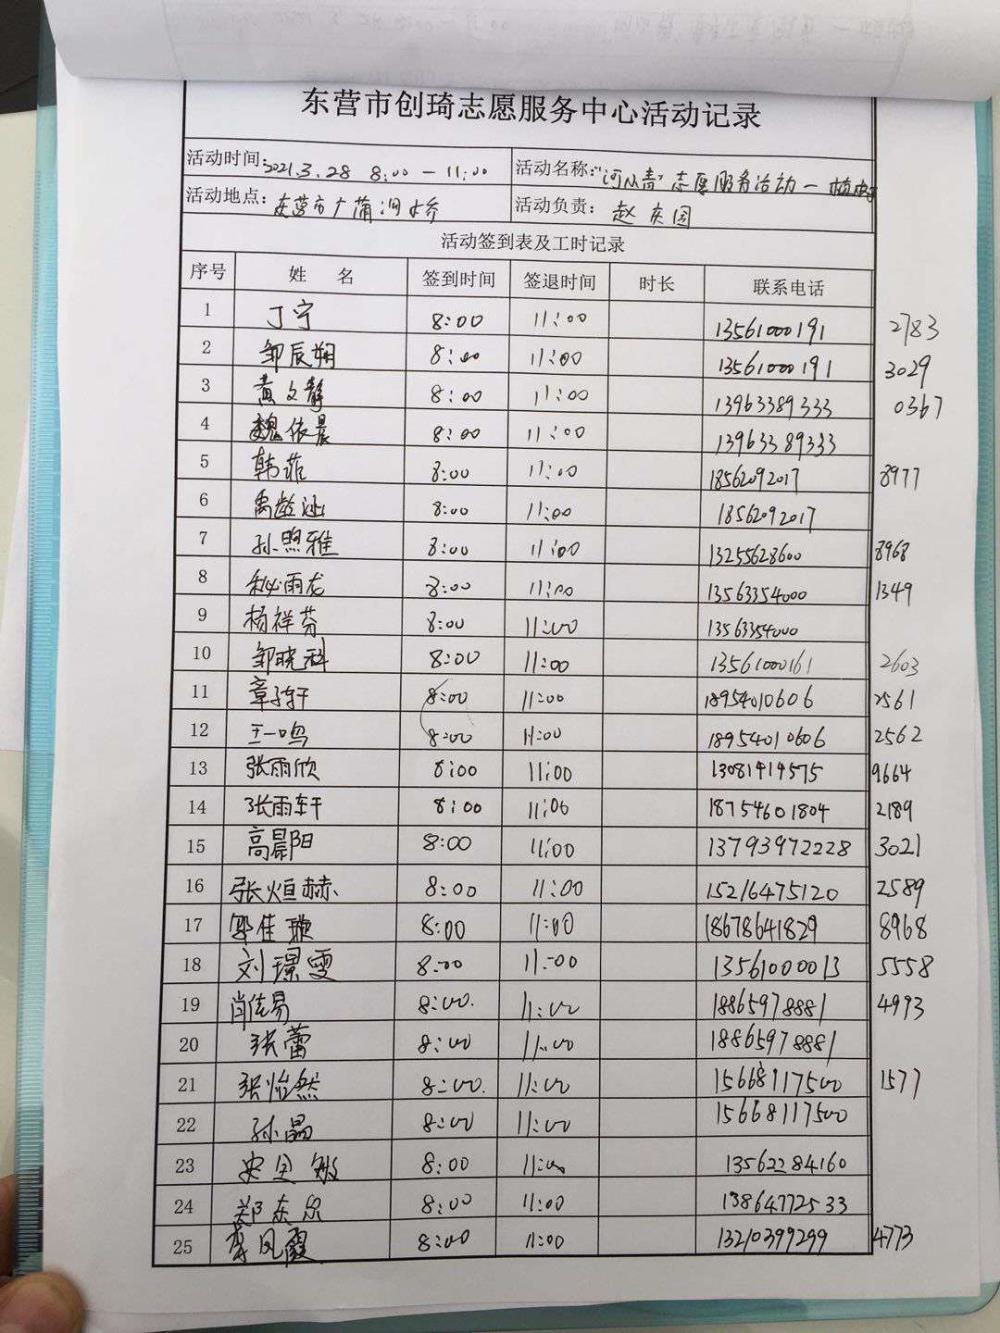 东营市创琦志愿服务中心活动记录
活动时间: 2021.3.28 8:00 — 11:00 活动名称: "河小青"志愿服务活动 — 植树
活动地点: 东营市广蒲河大桥 活动负责: 赵庆国
活动签到表及工时记录
序号 姓 名 签到时间 签退时间 时长 联系电话
1 丁宁 8:00 11:00 13561000191 2783
2 邹辰翊 8:00 11:00 13561000191 3029
3 黄文静 8:00 11:00 13963389333 0367
4 魏依晨 8:00 11:00 13963389333
5 韩菲 8:00 11:00 18562092017 8977
6 禹 8:00 11:00 18562092017
7 孙煦雅 8:00 11:00 13255628600 8968
8 秘雨龙 8:00 11:00 13563354000 1349
9 杨祥芬 8:00 11:00 13563354000
10 邹晓科 8:00 11:00 13561000161 2603
11 章子轩 8:00 11:00 18954010606 2561
12 王一鸣 8:00 11:00 18954010606 2562
13 张雨欣 8:00 11:00 13081419575 9664
14 张雨轩 8:00 11:00 18754601804 2189
15 高晨阳 8:00 11:00 13793972228 3021
16 张烜赫 8:00 11:00 15216475120 2589
17 郭佳璇 8:00 11:00 18678641829 8968
18 刘璟雯 8:00 11:00 13561000013 5558
19 肖佳易 8:00. 11:00 18865978881 4993
20 张蕾 8:00 11:00 18865978881
21 张怡然 8:00. 11:00 15668117500 1577
22 孙晶 8:00 11:00 15668117500
23 8:00 11:00 13562284160
24 郑东 8:00 11:00 13864772533
25 李凤霞 8:00 11:00 13210399299 4773